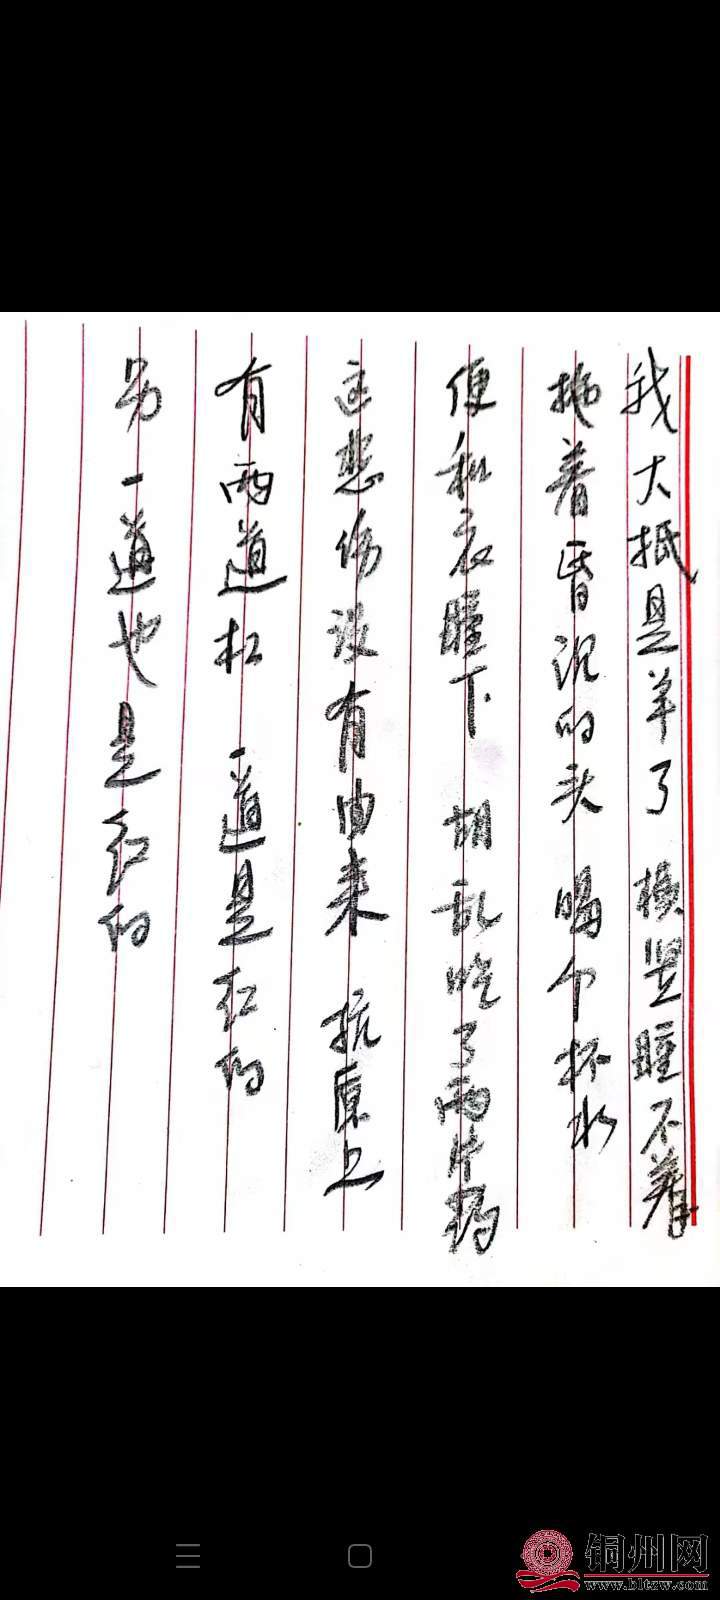 我大抵是羊了 横竖睡不着
拖着昏沉的头 喝个杯水
便和衣睡下 胡乱吃了两片药
这悲伤没有由来 抗原上
有两道杠 一道是红的
另一道也是红的
铜州网
www.bltzw.com